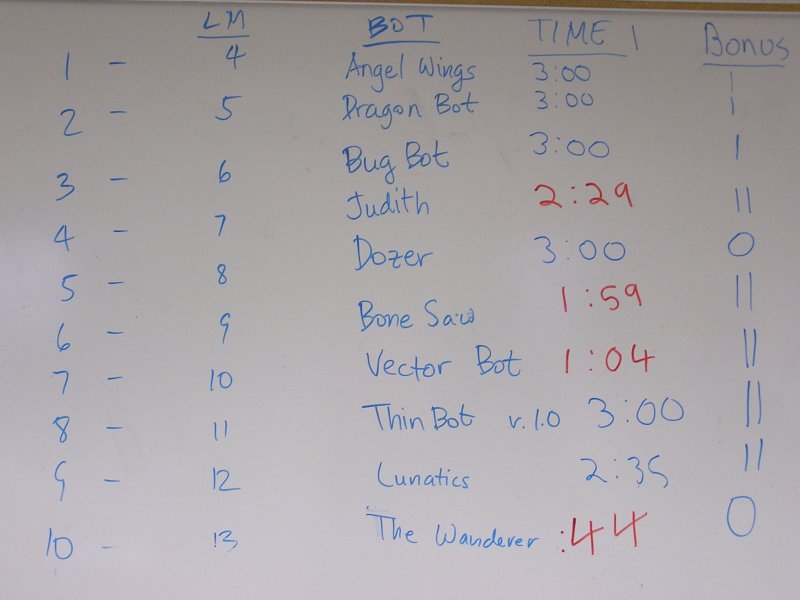 LM BOT TIME 1 Bonus
1 - 4 Angel Wings 3:00 1
2 - 5 Dragon Bot 3:00 1
3 - 6 Bug Bot 3:00 1
4 - 7 Judith 2:29 11
5 - 8 Dozer 3:00 0
6 - 9 Bone Saw 1:59 11
7 - 10 Vector Bot 1:04 11
8 - 11 Thin Bot v.1.0 3:00 11
9 - 12 Lunatics 2:35 11
10 - 13 The Wanderer :44 0